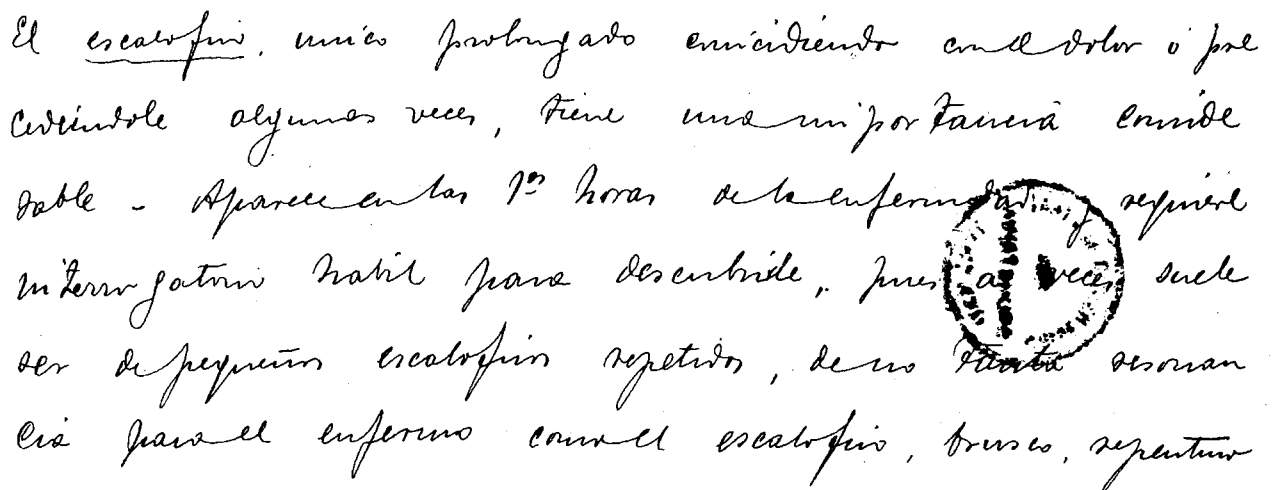 El escalofrio, unico prolongado coincidiendo con el dolor ó pre
cediendole algunas veces, tiene una importancia conside
rable - Aparece en las 1as horas de la enfermedad y requiere
interrogatorio habil para descubrirle, pues a veces suele
ser de pequeños escalofrios repetidos, de no tanta resonan
cia para el enfermo como el escalofrio, brusco, repentino